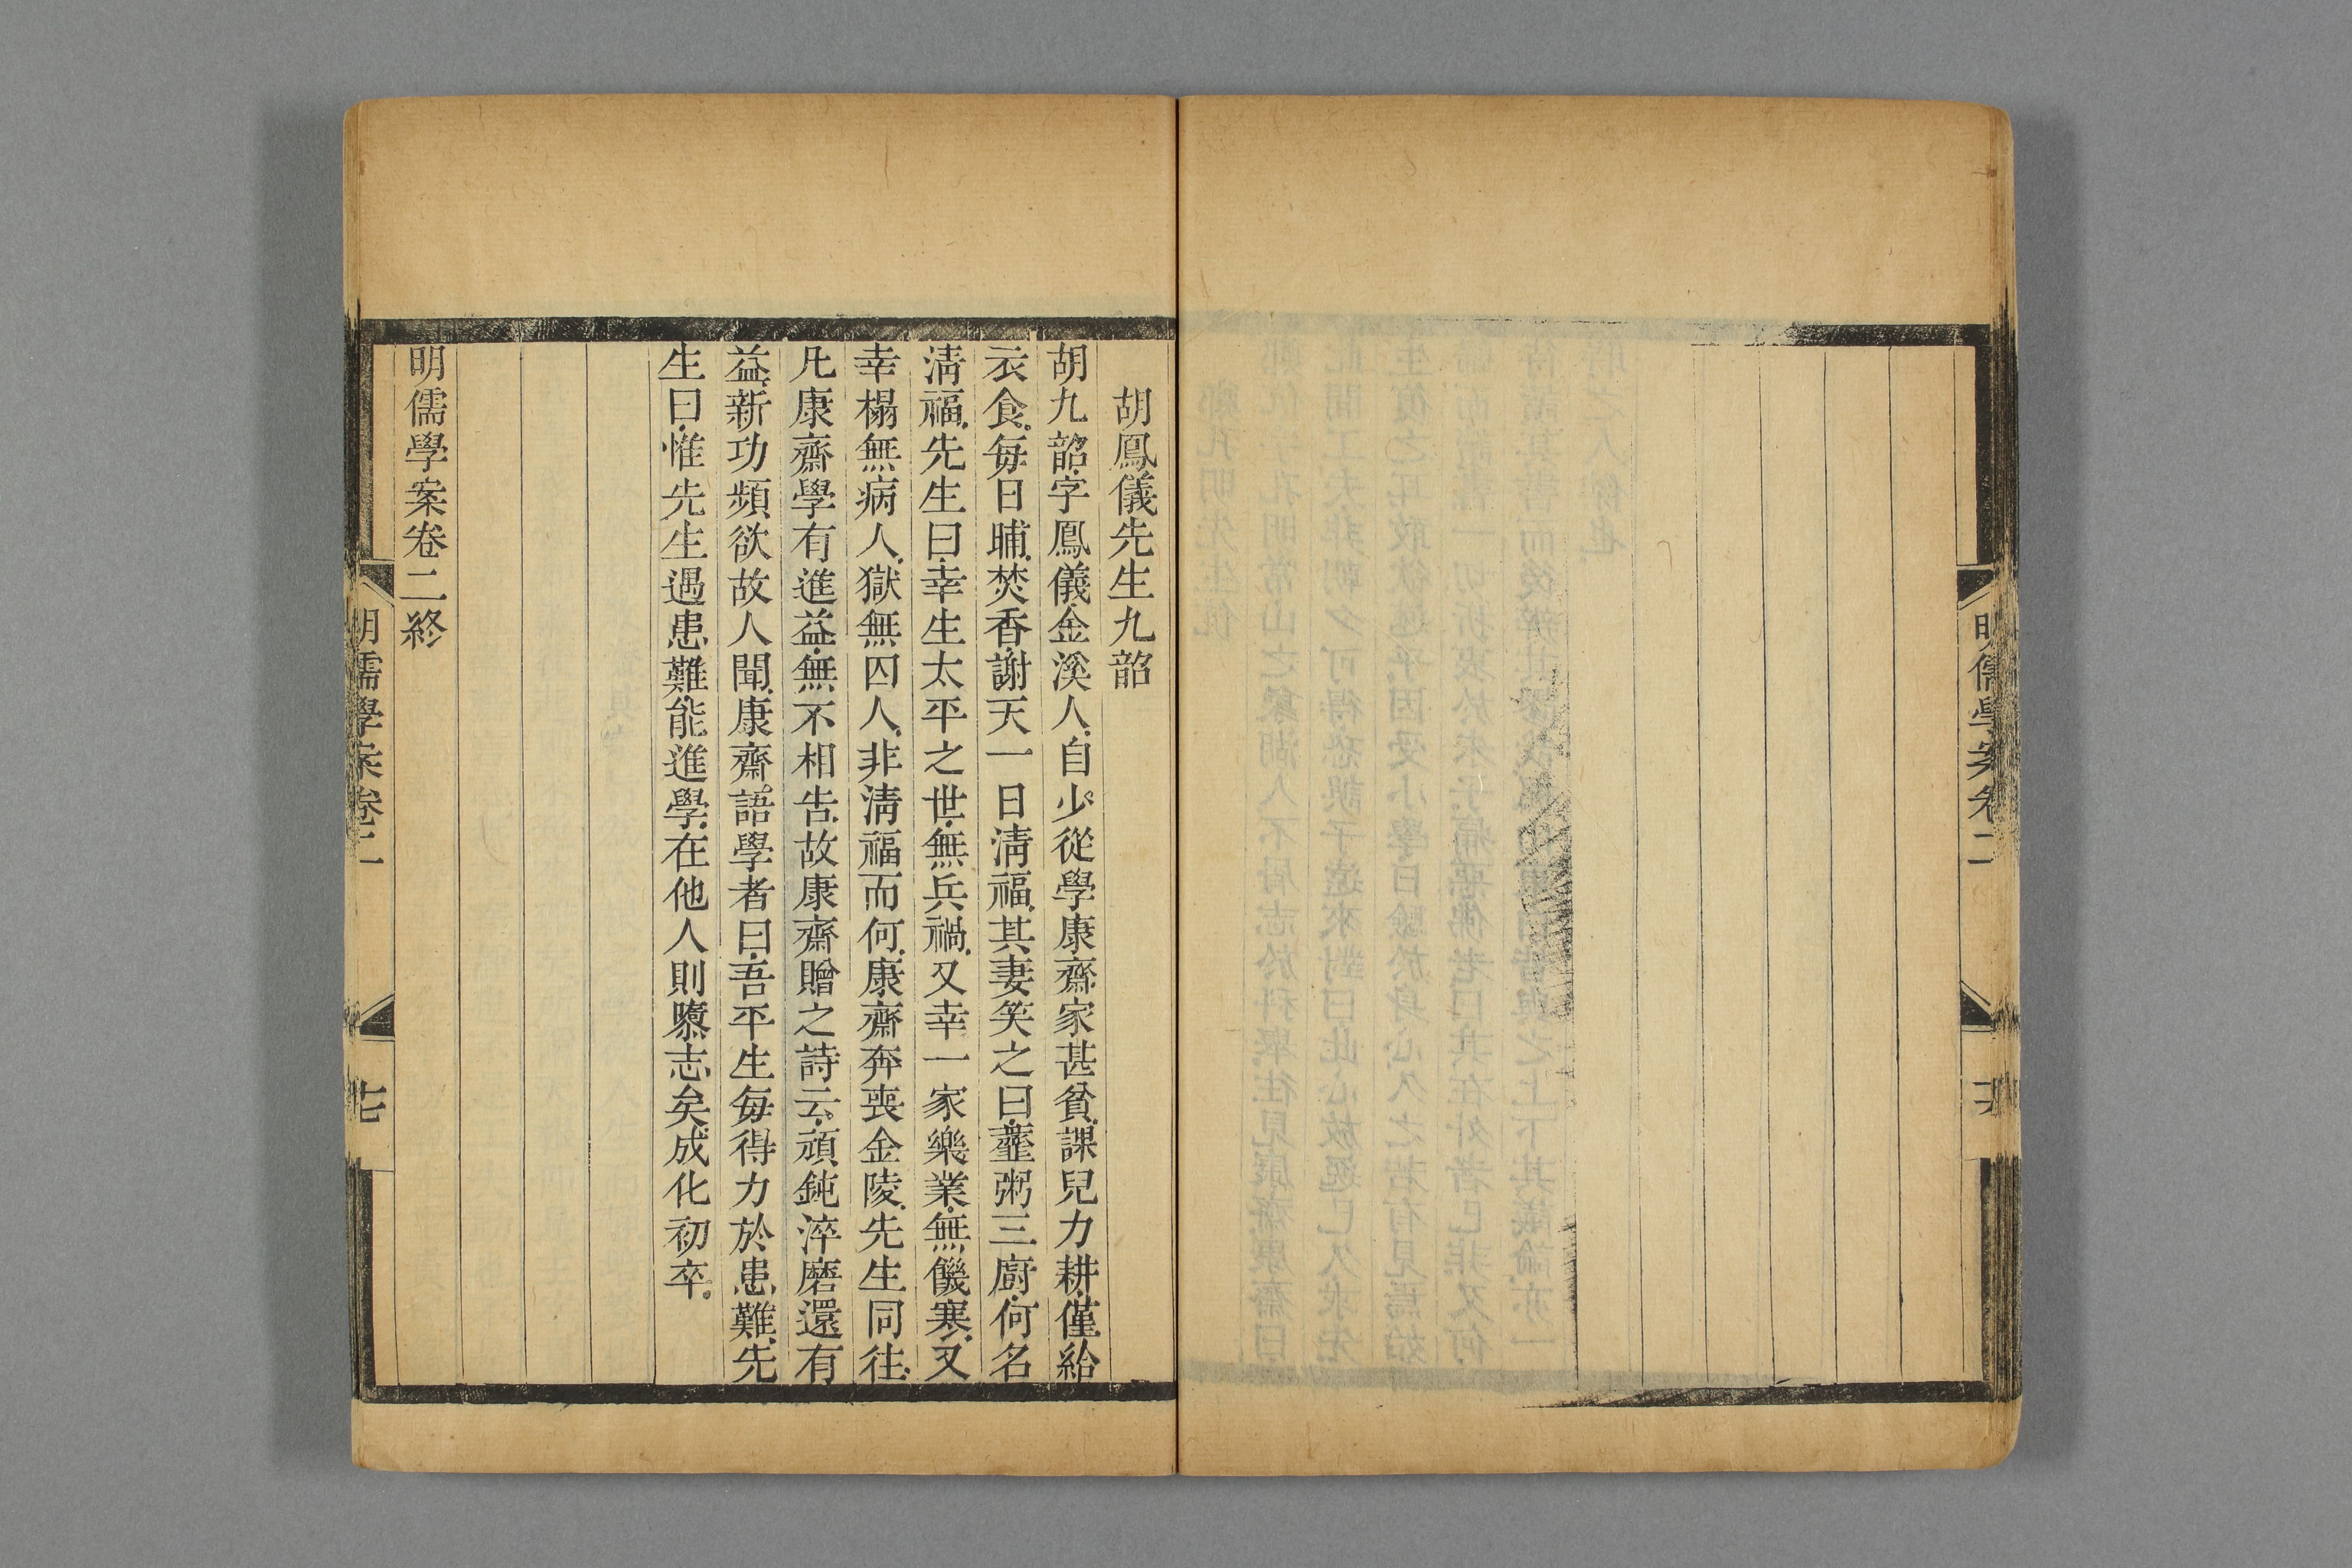 明儒學案卷二
胡鳳儀先生九韶
胡九韶字鳳儀金溪人自少從學康齋家甚貧課兒力耕僅給
衣食每日晡焚香謝天一日清福其妻笑之曰虀粥三廚何名
清福先生曰幸生太平之世無兵禍又幸一家樂業無饑寒又
幸榻無病人獄無囚人非清福而何康齋奔喪金陵先生同往
凡康齋學有進益無不相告故康齋贈之詩云頑鈍淬磨還有
益新功頻欲故人聞康齋語學者曰吾平生每得力於患難先
生曰惟先生遇患難能進學在他人則隳志矣成化初卒
明儒學案卷二終
明儒學案卷二